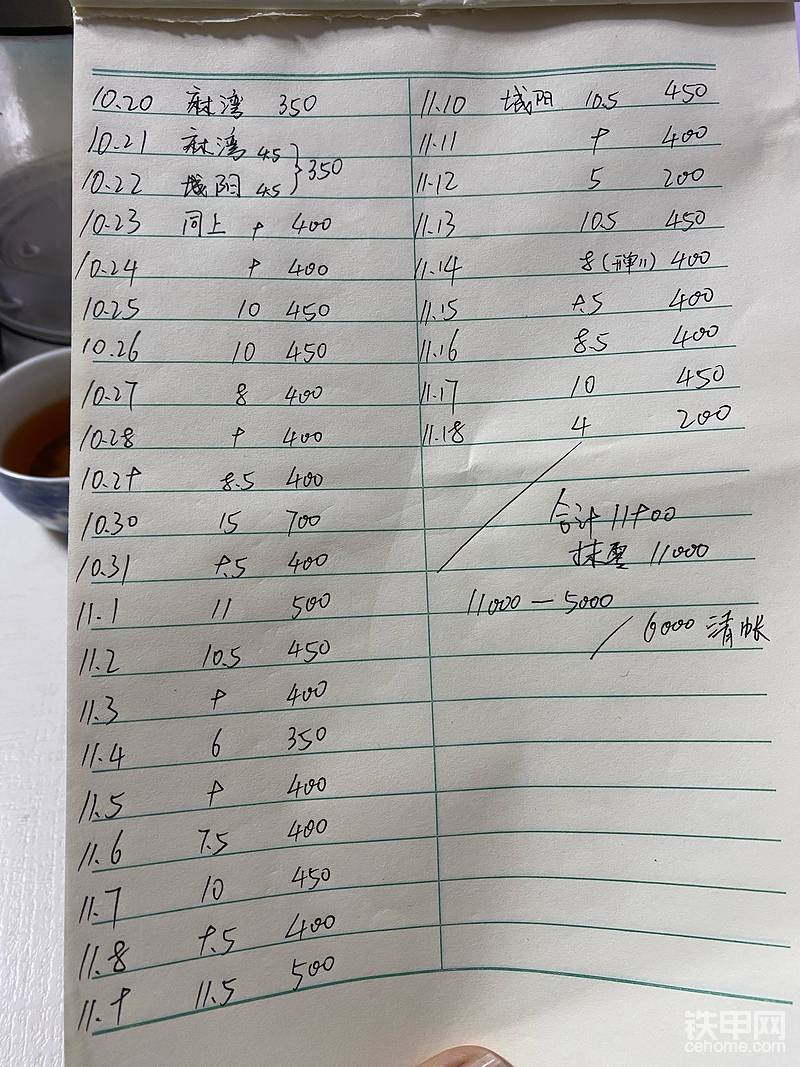 10.20 麻湾 350
10.21 麻湾 4.5
10.22 城阳 4.5 } 350
10.23 同上 9 400
10.24 9 400
10.25 10 450
10.26 10 450
10.27 8 400
10.28 9 400
10.29 8.5 400
10.30 15 700
10.31 9.5 400
11.1 11 500
11.2 10.5 450
11.3 9 400
11.4 6 350
11.5 9 400
11.6 7.5 400
11.7 10 450
11.8 9.5 400
11.9 11.5 500
11.10 城阳 10.5 450
11.11 9 400
11.12 5 200
11.13 10.5 450
11.14 8 400
11.15 9.5 400
11.16 8.5 400
11.17 10 450
11.18 4 200
合计 11900
抹零 11000
11000 — 5000
6000 清帐
铁甲网
cehome.com